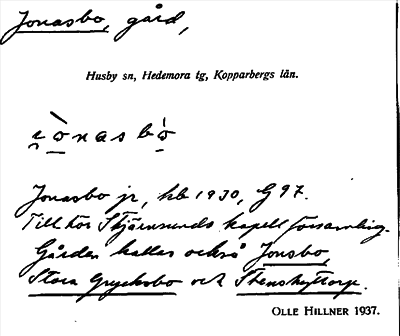 Jonasbo, gård,
Husby sn, Hedemora tg, Kopparbergs län.
Jonasbo jr, kb 1930, G 97.
Tillhör Stjärnsunds kapellförsamling.
Gården kallas också Jonsbo,
Stora Grycksbo och Stenshyttorp.
OLLE HILLNER 1937.